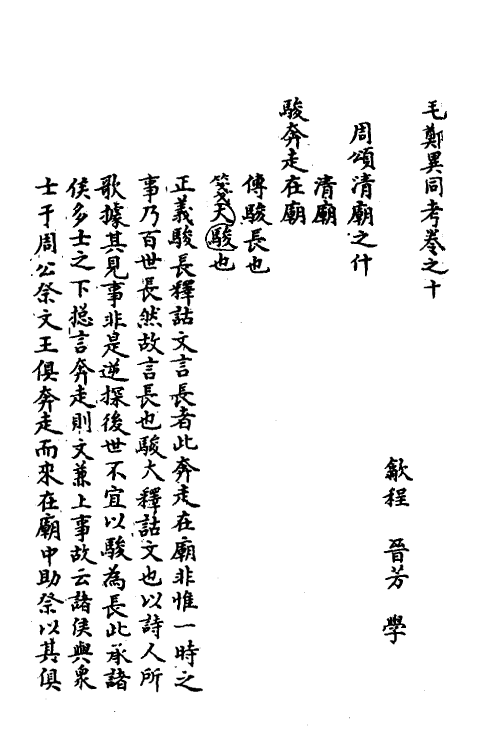 毛鄭異同考卷之十
歙程 晉芳 學
周頌清廟之什
清廟
駿奔走在廟
傳駿長也
箋大駿也
正義駿長釋詁文言長者此奔走在廟非惟一時之
事乃百世長然故言長也駿大釋詁文也以詩人所
歌據其見事非是逆探後世不宜以駿為長此承諸
侯多士之下揔言奔走則文兼上事故云諸侯與衆
士于周公祭文王俱奔走而來在廟中助祭以其俱